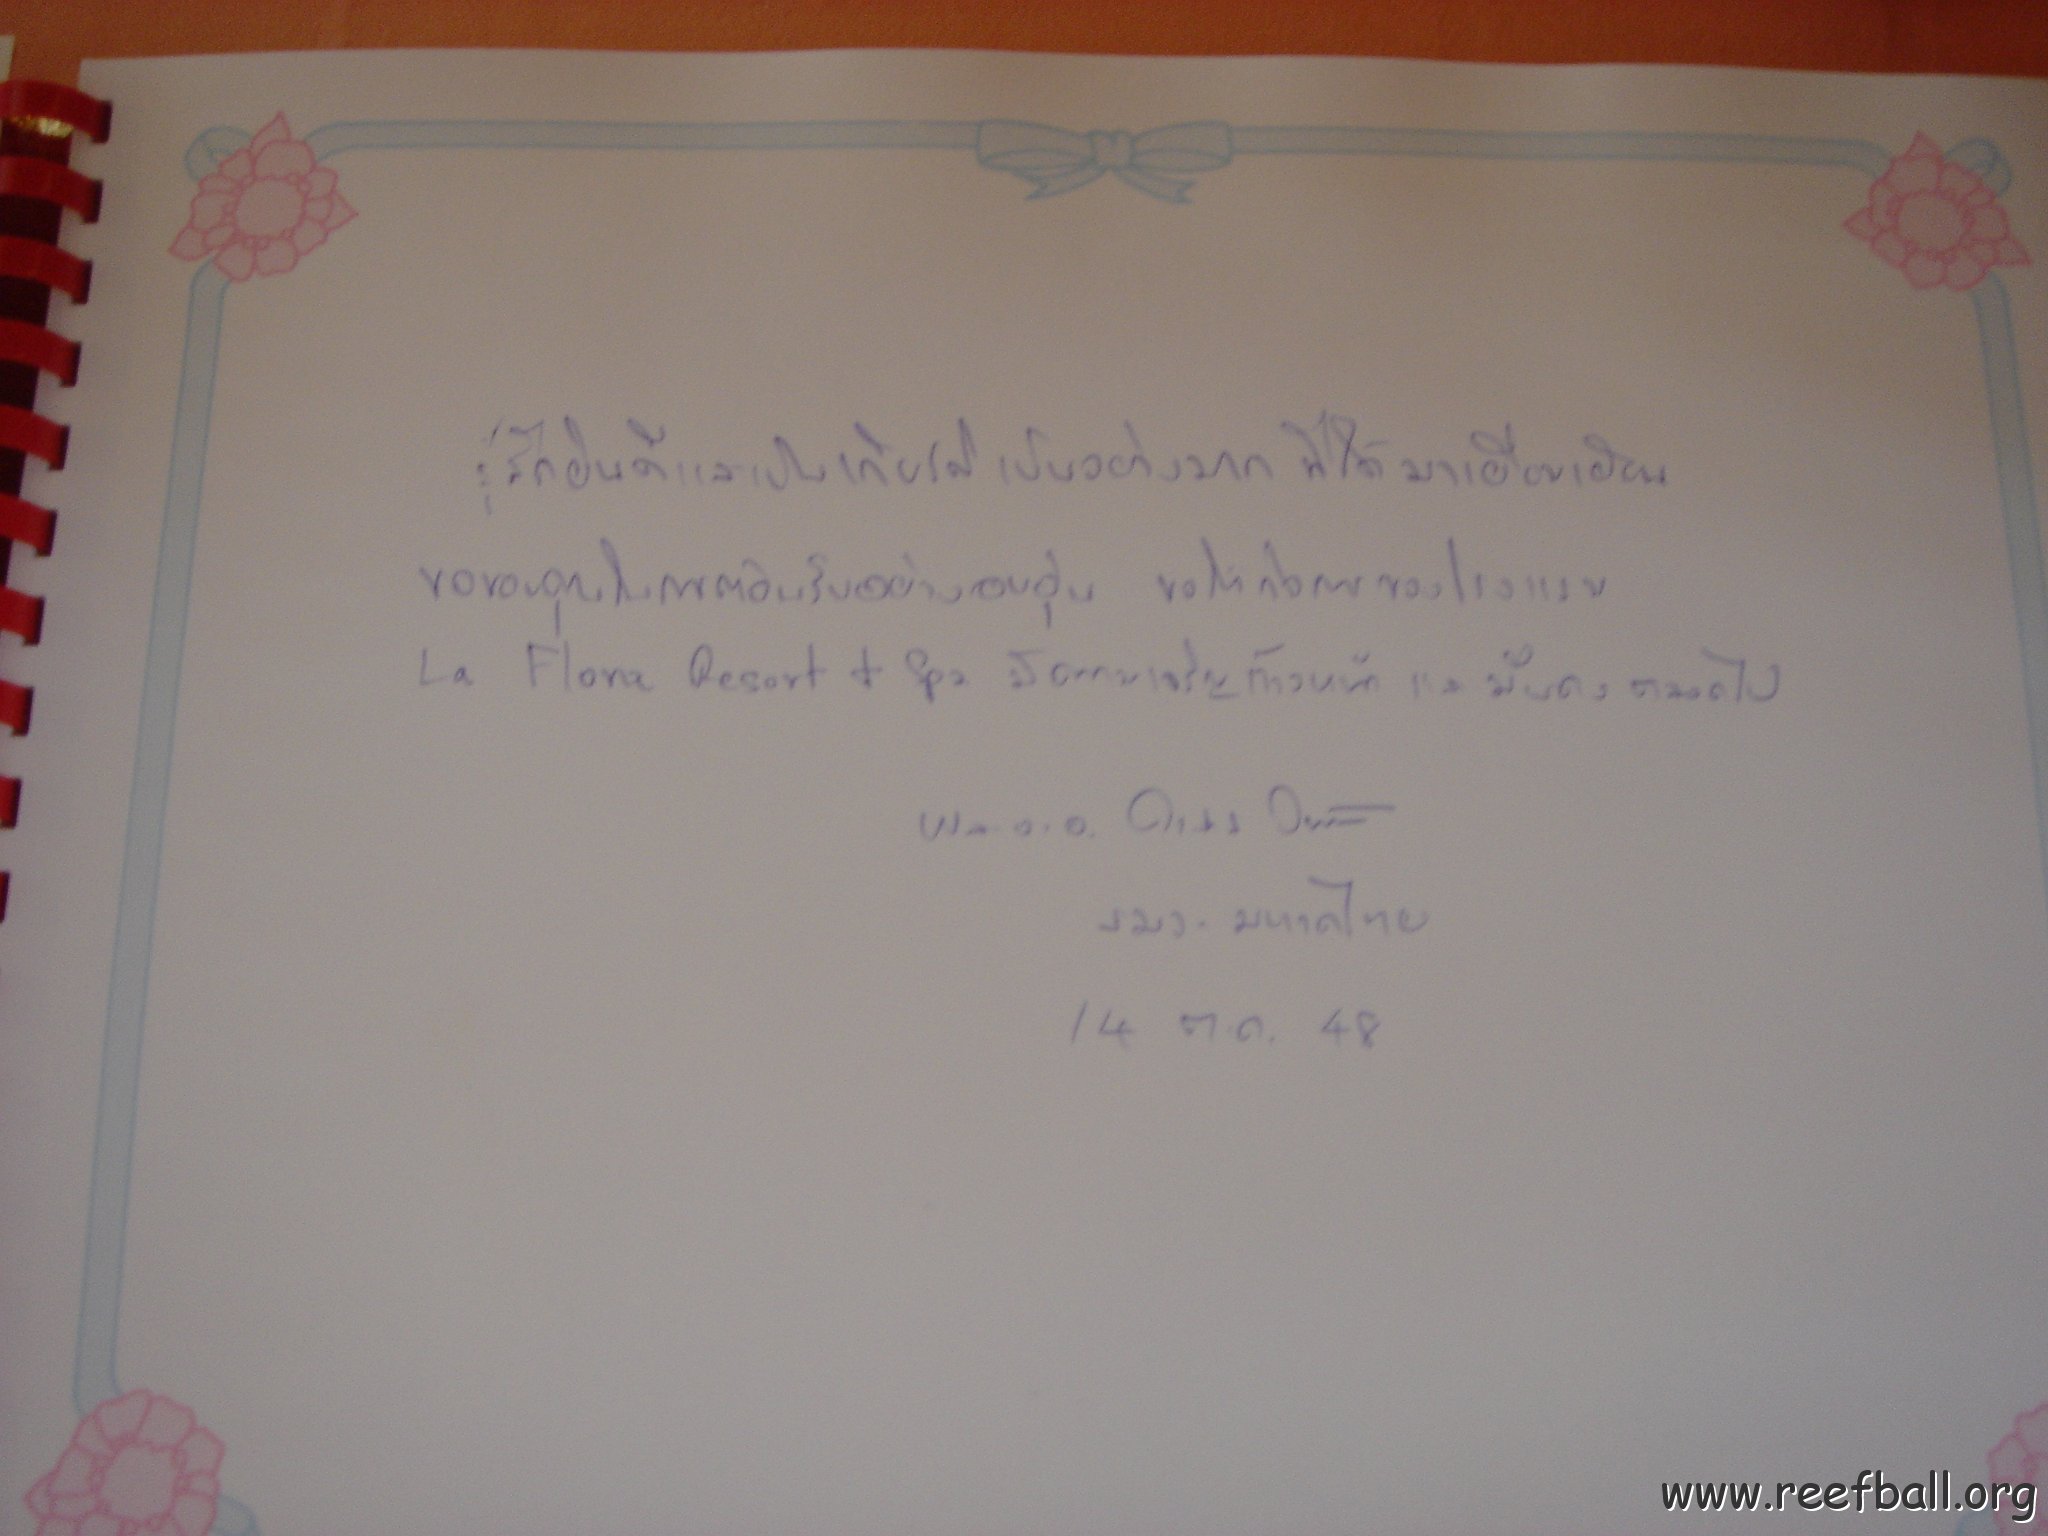 รู้สึกยินดีและเป็นเกียรติ เป็นอย่างมาก ที่ได้ มาเยี่ยมเยียน
ขอขอบคุณในการต้อนรับอย่างอบอุ่น ขอให้กิจการของโรงแรม
La Flora Resort & Spa มีความเจริญก้าวหน้า และ มั่นคง ตลอดไป
พล.อ.อ. คงศักดิ์
รมว. มหาดไทย
14 ต.ค. 48
www.reefball.org